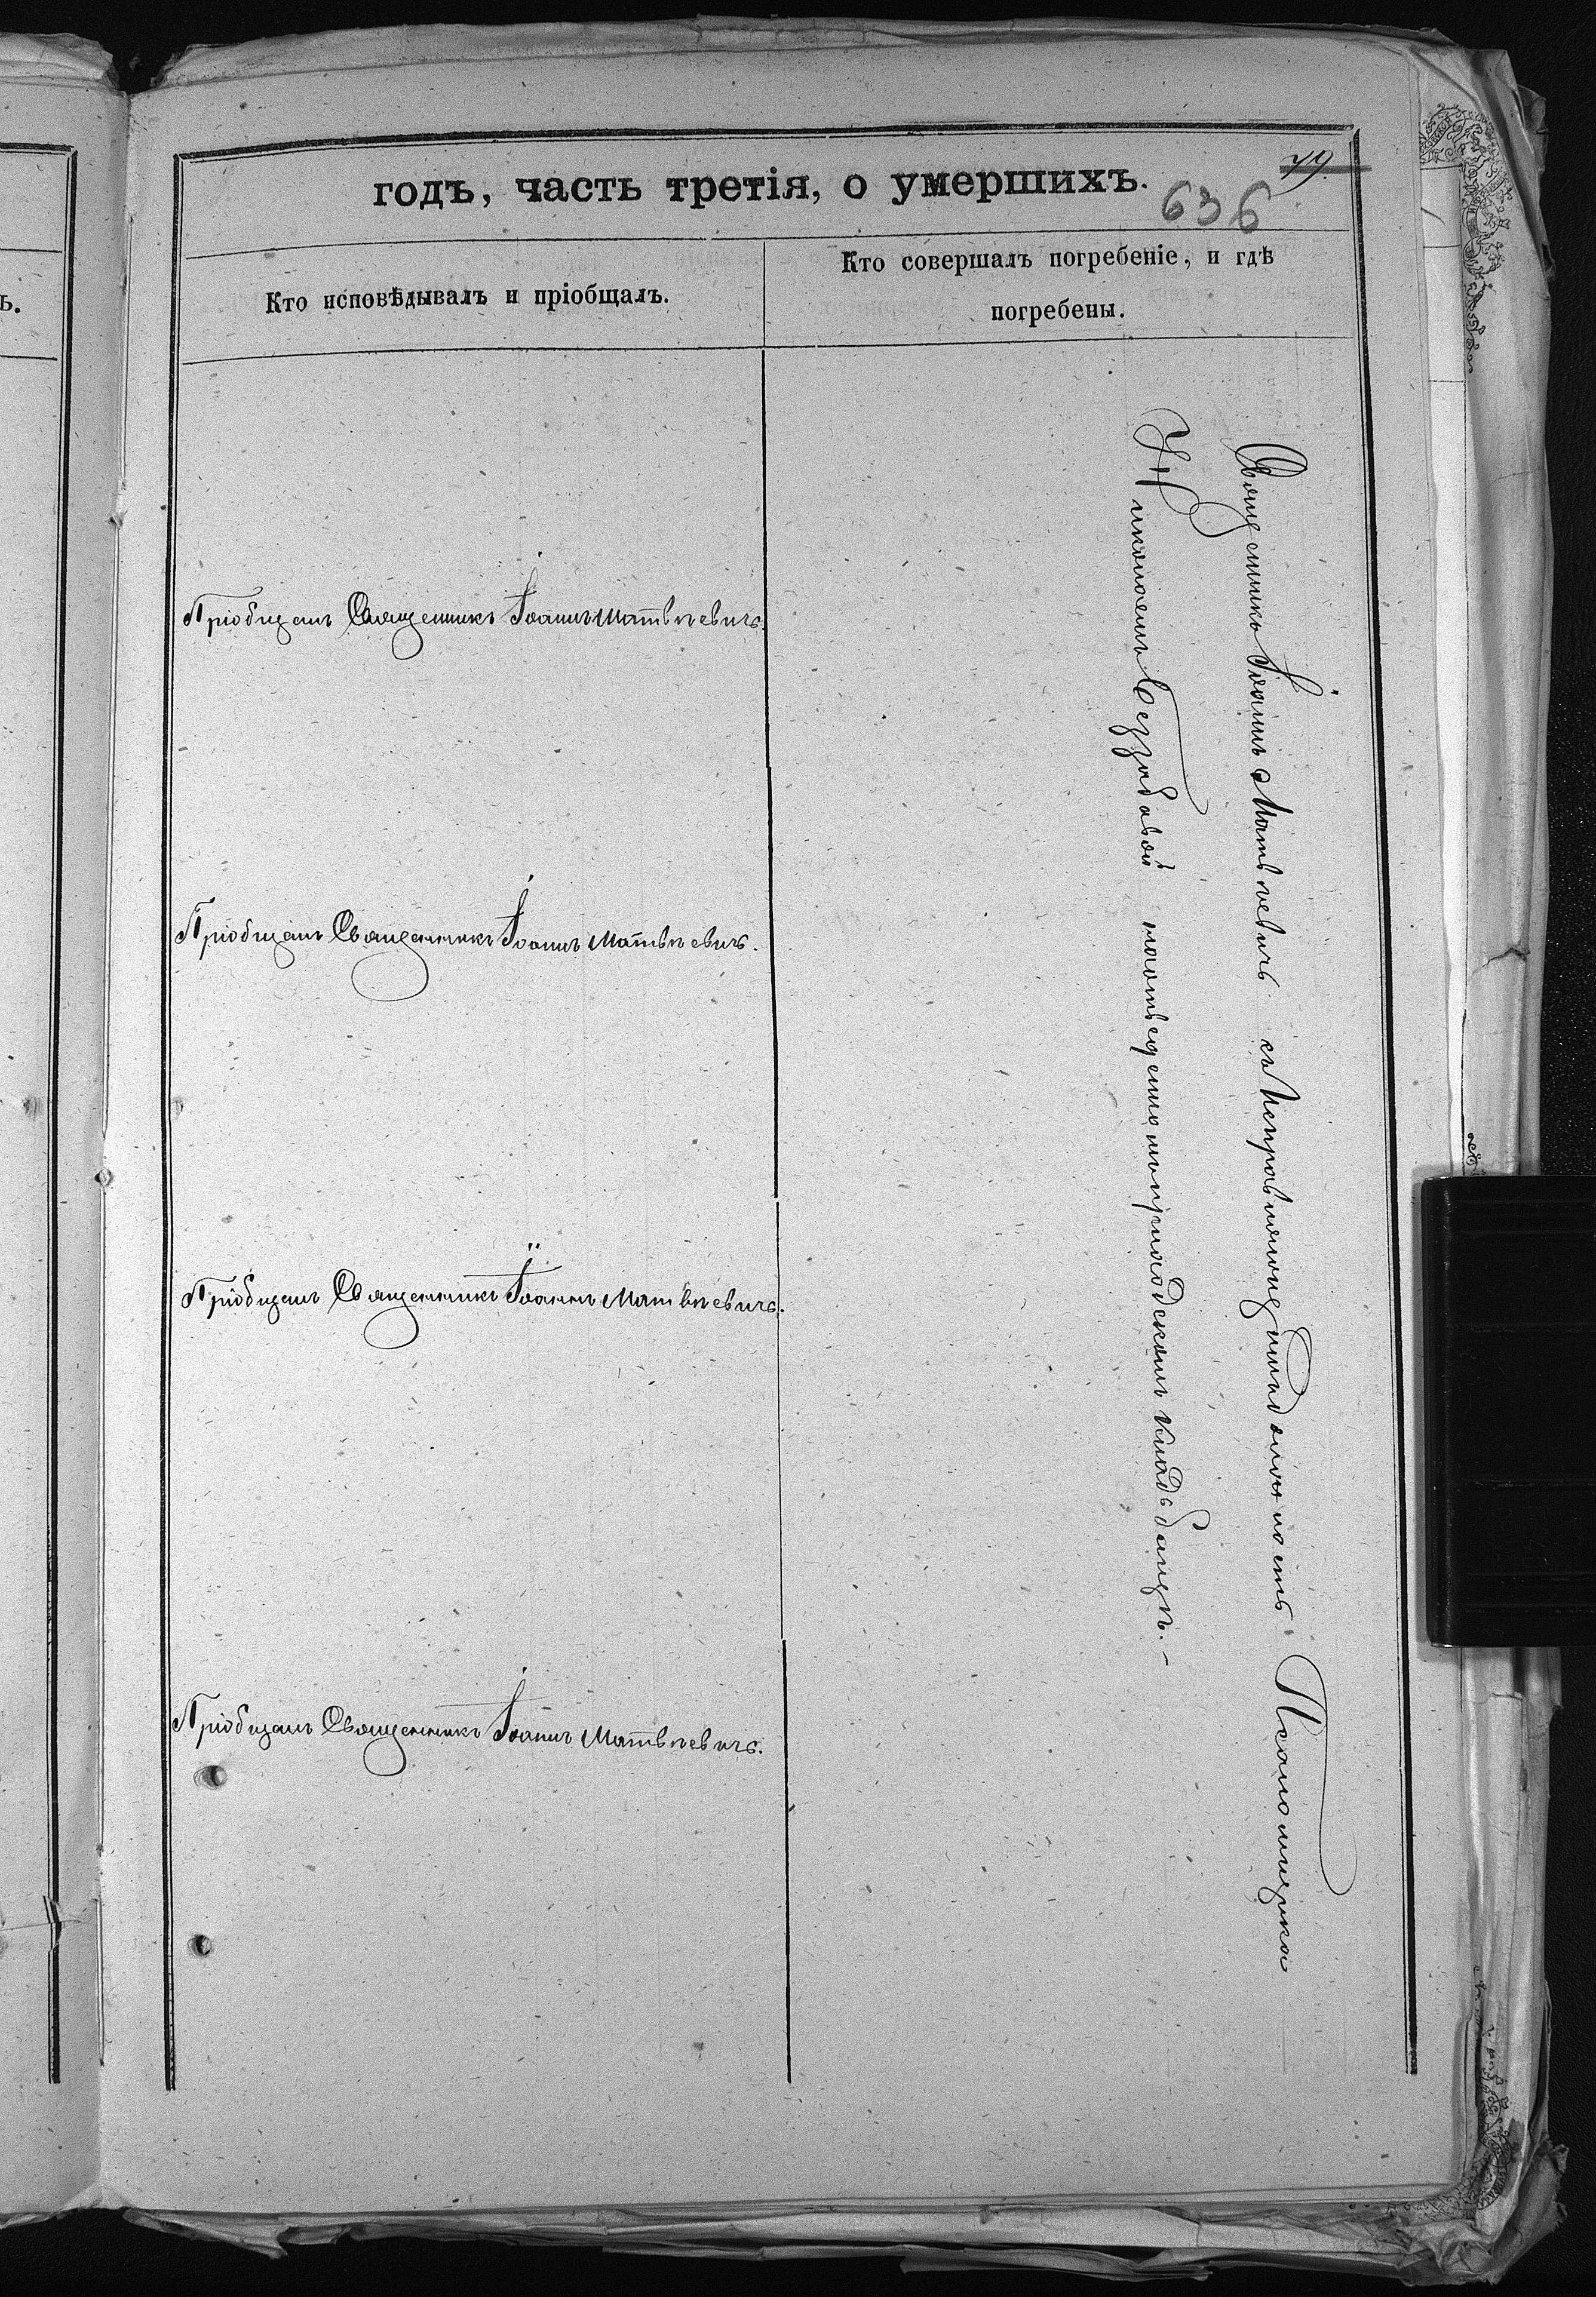 79
годъ, часть третія, о умершихъ.
636
Кто исповѣдывалъ и пріобщалъ.
Кто совершалъ погребеніе, и гдѣ
погребены.
Пріобщалъ Священникъ Іоаннъ Матвѣевичъ.
Пріобщалъ Священникъ Іоаннъ Матвѣевичъ.
Пріобщалъ Священникъ Іоаннъ Матвѣевичъ.
Пріобщалъ Священникъ Іоаннъ Матвѣевичъ.
Священникъ Іоаннъ Матвѣевичъ съ Исправляющимъ должность Псаломщика
Николаемъ на приходскомъ кладбищѣ.-